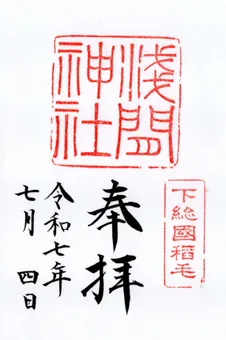 浅間
神社
下総國稲毛
奉拝
令和七年
七月 四日